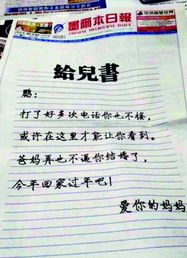 墨爾本日報
CHINESE MELBOURNE DAILY
給兒書
鵬:
打了好多次电话你也不接,
或许在这里才能让你看到。
爸妈再也不逼你结婚了,
今年回家过年吧!
爱你的妈妈